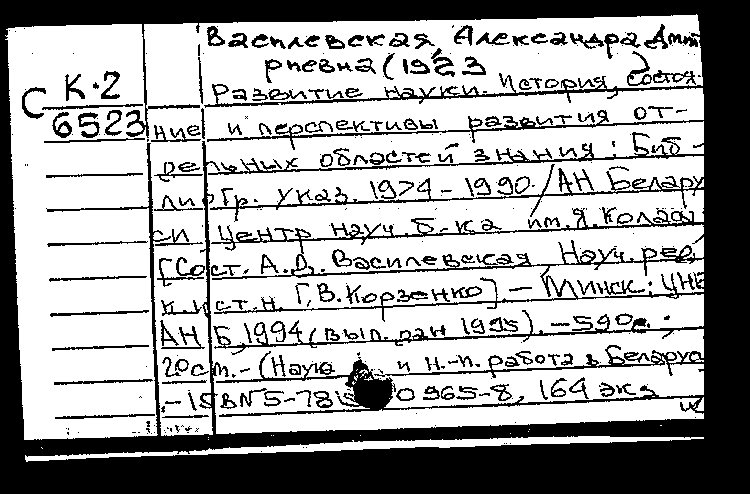 Василевская, Александра Дмит
риевна (1923 )
К.2 Развитие науки. История, состоя-
С 6523 ние и перспективы развития от-
дельных областей знания: Биб-
лиогр. указ. 1974-1990. / АН Белару
си Центр науч. б-ка им. Я. Коласа;
[Сост. А.Д. Василевская Науч. ред.
к.ист.н. Г.В. Корзенко]. - Минск: ЦНБ
АН Б, 1994 (вып. дан 1995). - 590с.;
20см. - (Наука и н.-п. работа в Беларус
. - ISBN 5-7815 0965-8, 164 экз